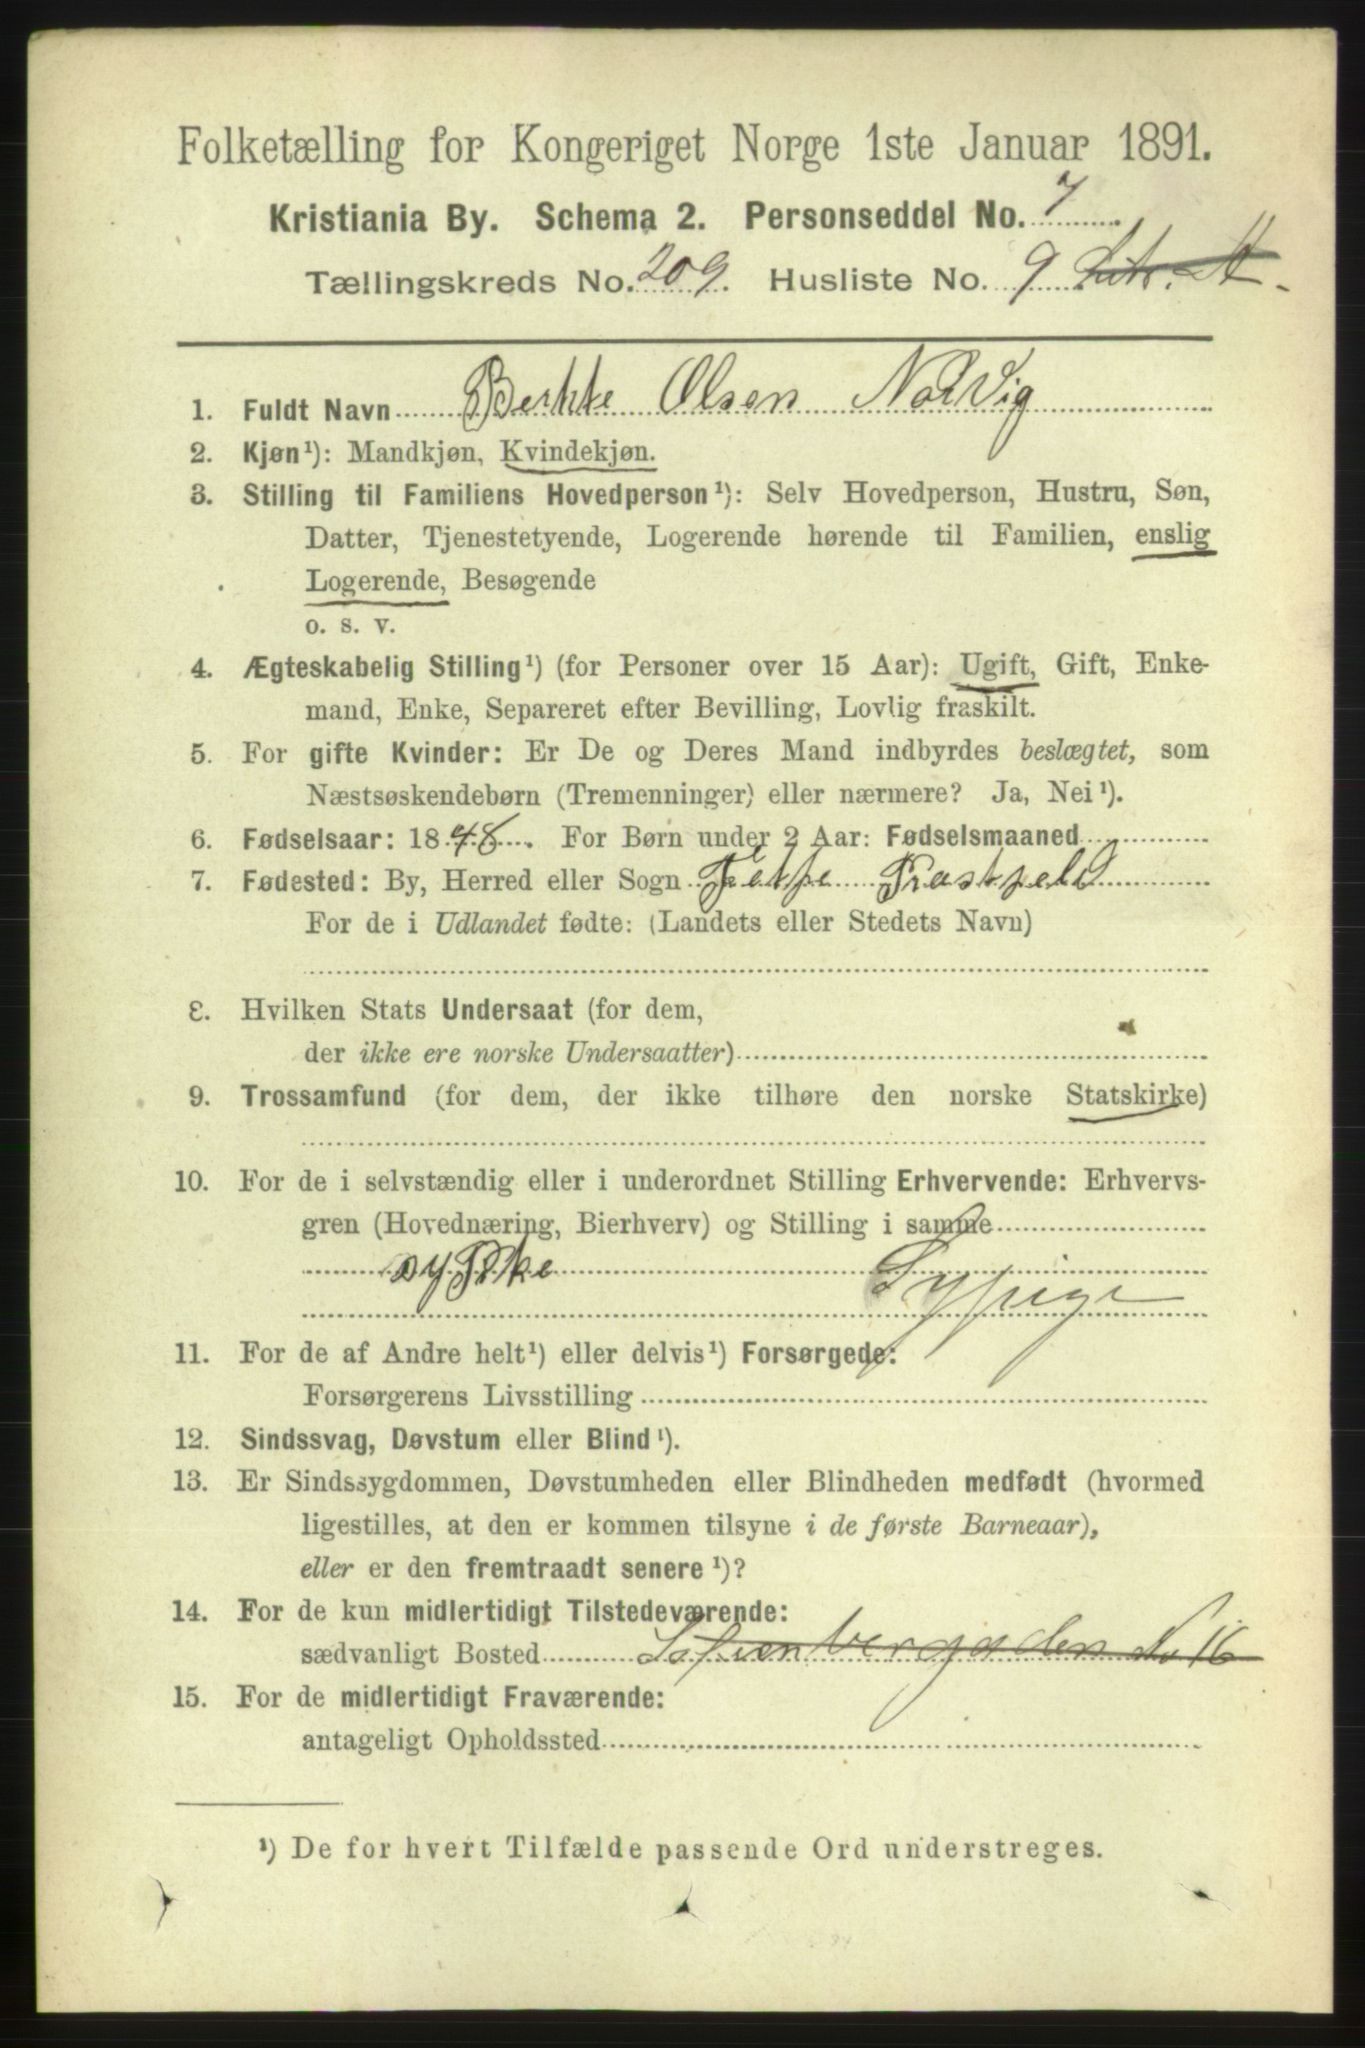 Folketælling for Kongeriget Norge 1ste Januar 1891.
Kristiania By. Schema 2. Personseddel No. 7
Tællingskreds No. 209. Husliste No. 9
1. Fuldt Navn Berthe Olsen Nordvig
2. Kjøn¹): Mandkjøn, Kvindekjøn.
3. Stilling til Familiens Hovedperson¹): Selv Hovedperson, Hustru, Søn,
Datter, Tjenestetyende, Logerende hørende til Familien, enslig
Logerende, Besøgende
o. s. v.
4. Ægteskabelig Stilling¹) (for Personer over 15 Aar): Ugift, Gift, Enke-
mand, Enke, Separeret efter Bevilling, Lovlig fraskilt.
5. For gifte Kvinder: Er De og Deres Mand indbyrdes beslægtet, som
Næstsøskendebørn (Tremenninger) eller nærmere? Ja, Nei¹).
6. Fødselsaar: 1848. For Børn under 2 Aar: Fødselsmaaned
7. Fødested: By, Herred eller Sogn
For de i Udlandet fødte: (Landets eller Stedets Navn)
8. Hvilken Stats Undersaat (for dem,
der ikke ere norske Undersaatter)
9. Trossamfund (for dem, der ikke tilhøre den norske Statskirke)
10. For de i selvstændig eller i underordnet Stilling Erhvervende: Erhvervs-
gren (Hovednæring, Bierhverv) og Stilling i samme
Sypige
11. For de af Andre helt¹) eller delvis¹) Forsørgede:
Forsørgerens Livsstilling
12. Sindssvag, Døvstum eller Blind¹).
13. Er Sindssygdommen, Døvstumheden eller Blindheden medfødt (hvormed
ligestilles, at den er kommen tilsyne i de første Barneaar),
eller er den fremtraadt senere¹)?
14. For de kun midlertidigt Tilstedeværende:
sædvanligt Bosted Sofienbergaden No 16
15. For de midlertidigt Fraværende:
antageligt Opholdssted
¹) De for hvert Tilfælde passende Ord understreges.